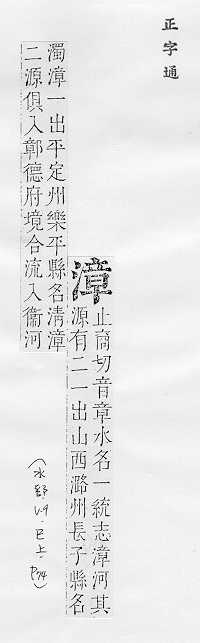 正字通
漳
止商切音章水名一統志漳河其
源有二一出山西潞州長子縣名
濁漳一出平定州樂平縣名清漳
二源俱入彰德府境合流入衞河
(水部 P.74)